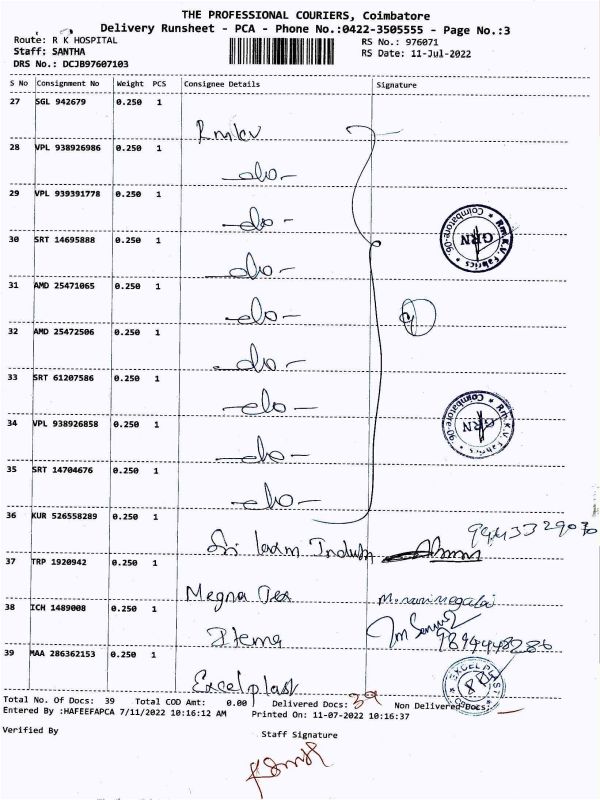 THE PROFESSIONAL COURIERS, Coimbatore
Delivery Runsheet - PCA - Phone No.:0422-3505555 - Page No.:3
Route: R K HOSPITAL
RS No.: 976071
Staff: SANTHA
RS Date: 11-Jul-2022
DRS No.: DCJB97607103
S No Consignment No Weight PCS Consignee Details Signature
27 SGL 942679 0.250 1
Rmkv
28 VPL 938926986 0.250 1
-do-
29 VPL 939391778 0.250 1
-do-
30 SRT 14695888 0.250 1
-do-
31 AMD 25471065 0.250 1
-do-
32 AMD 25472506 0.250 1
-do-
33 SRT 61207586 0.250 1
-do-
34 VPL 938926858 0.250 1
-do-
35 SRT 14704676 0.250 1
-do-
36 KUR 526558289 0.250 1
Sri laxm Indust
37 TRP 1920942 0.250 1
Megna Tex
38 ICH 1489008 0.250 1
Itema 9894448286
39 MAA 286362153 0.250 1
Excel plast
Rm.K.V. Fabrics * Coimbatore * GRN
Rm.K.V. Fabrics * Coimbatore * GRN
EXCEL PLAST
Total No. Of Docs: 39 Total COD Amt: 0.00 Delivered Docs: 39 Non Delivered Docs:
Entered By :HAFEEFAPCA 7/11/2022 10:16:12 AM Printed On: 11-07-2022 10:16:37
Verified By Staff Signature